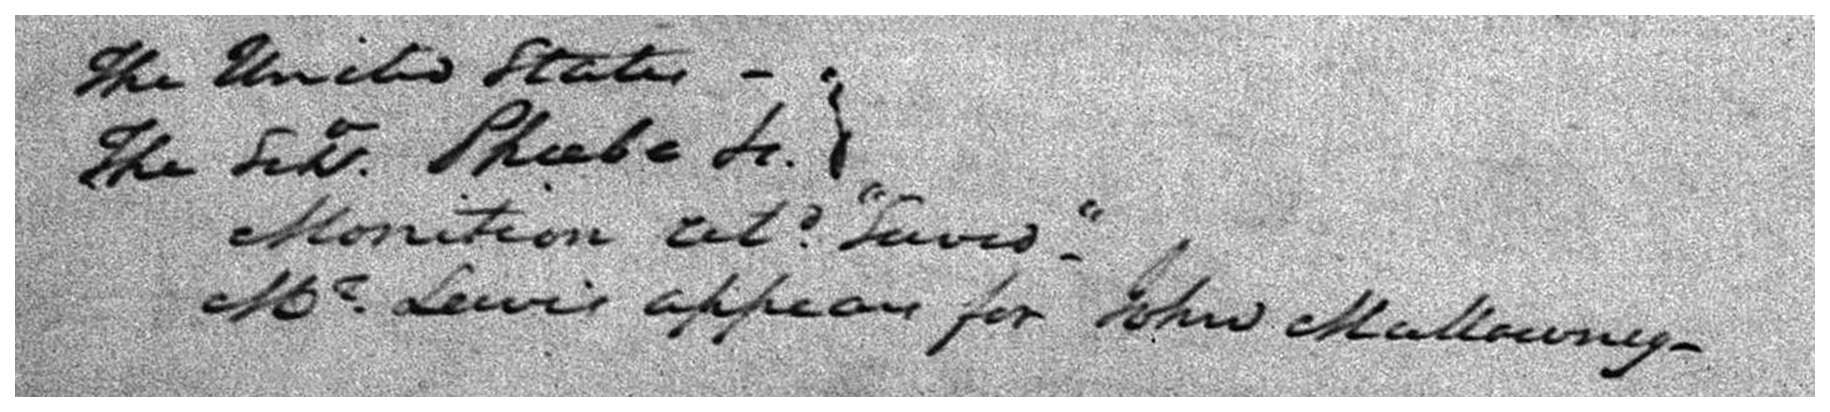 The United States -
The Schr. Phoebe &c.
Monition retd. "Served".
Mr. Lewis appears for John Mullowney-